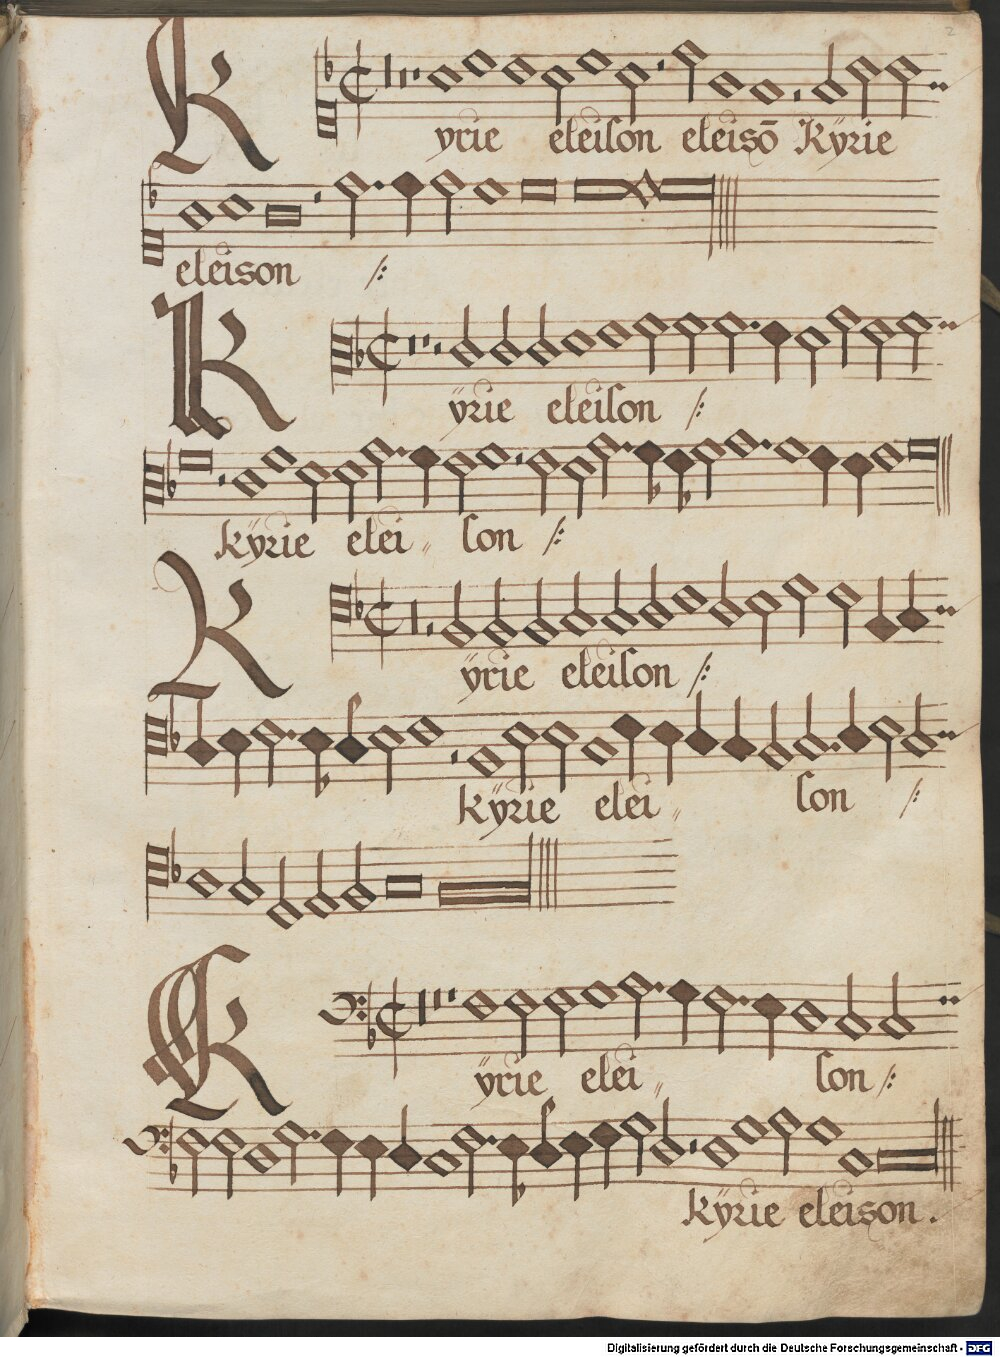 2
Kyrie eleison eleisō Kÿrie
eleison /:
Kÿrie eleison /:
kÿrie elei„ son /:
Kÿrie eleison /:
kÿrie elei„ son /:
Kÿrie elei„ son /:
Kÿrie eleison.
Digitalisierung gefördert durch die Deutsche Forschungsgemeinschaft - DFG